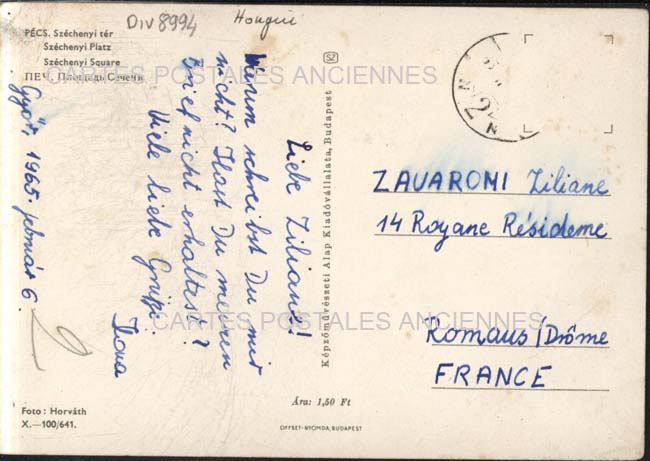 DIV8994
Hongrie
PÉCS. Széchenyi tér
Széchenyi Platz
Széchenyi Square
ПЕЧ. Площадь Сечени
CARTES POSTALES ANCIENNES
Győr, 1965. február 6.
Liebe Ziliane!
Warum schreibst Du mir
nicht? Hast Du meinen
Brief nicht erhaltest?
Viele liebe Grüße
Ilona
SZ
Képzőművészeti Alap Kiadóvállalata, Budapest
ZAVAROMI Ziliane
14 Royane Résideme
CARTES POSTALES ANCIENNES
Romaus/Drôme
FRANCE
Ára: 1,50 Ft
Foto: Horváth
X.—100/641.
OFFSET-NYOMDA, BUDAPEST